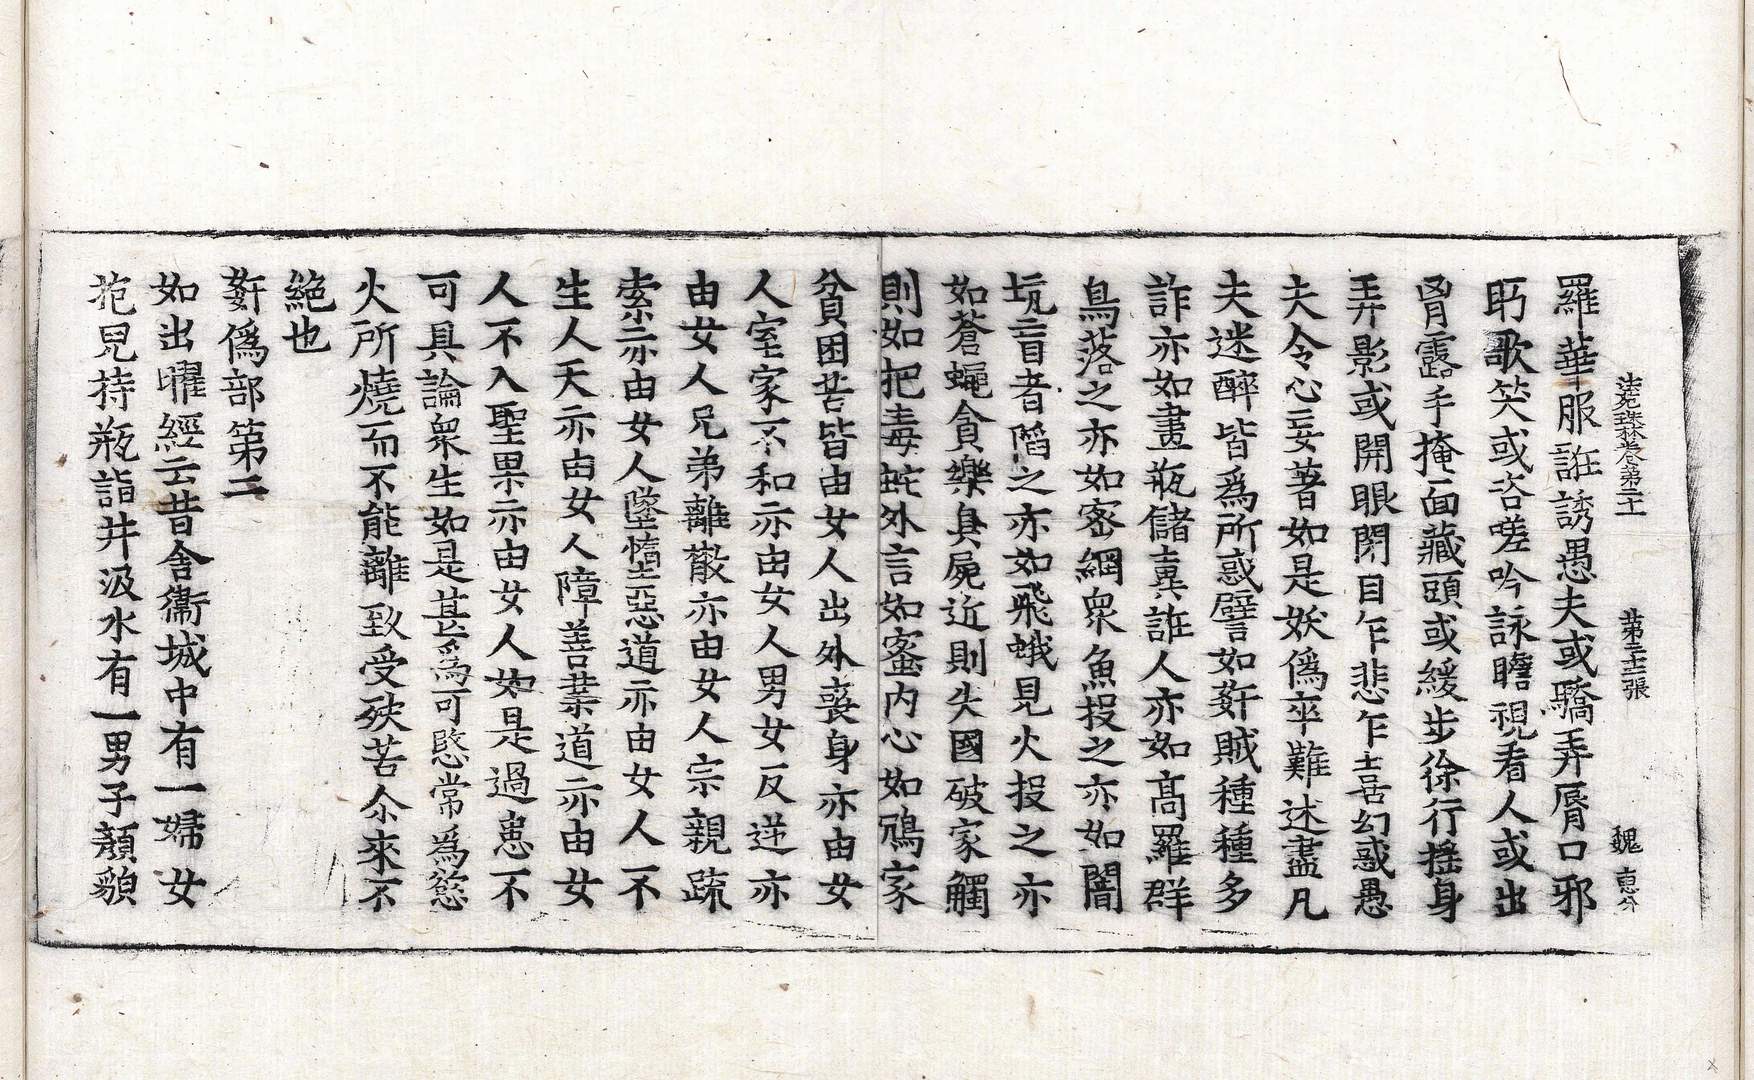 法苑珠林卷第二十一 第二十三張 魏 恵分
羅華服誑誘愚夫或驕弄脣口邪
眄歌笑或咨嗟吟詠瞻視看人或出
胷露手掩面藏頭或緩步徐行揺身
弄影或開眼閇目乍悲乍喜幻惑愚
夫令心妄著如是妖僞卒難述盡凡
夫迷醉皆爲所惑譬如姧賊種種多
詐亦如畫瓶儲糞誑人亦如髙羅群
鳥落之亦如宻網衆魚投之亦如闇
坑盲者蹈之亦如飛蛾見火投之亦
如蒼蠅貪樂臭屍近則失國破家觸
則如把毒蛇外言如蜜内心如鴆家
貧困苦皆由女人出外喪身亦由女
人室家不和亦由女人男女反逆亦
由女人兄弟離散亦由女人宗親疏
索亦由女人墜墮惡道亦由女人不
生人天亦由女人障善業道亦由女
人不入聖果亦由女人如是過患不
可具論衆生如是甚爲可愍常爲慾
火所燒而不能離致受殃苦尒來不
絶也
姧僞部第二
如出曜經云昔舍衞城中有一婦女
抱兒持瓶詣井汲水有一男子顔貌